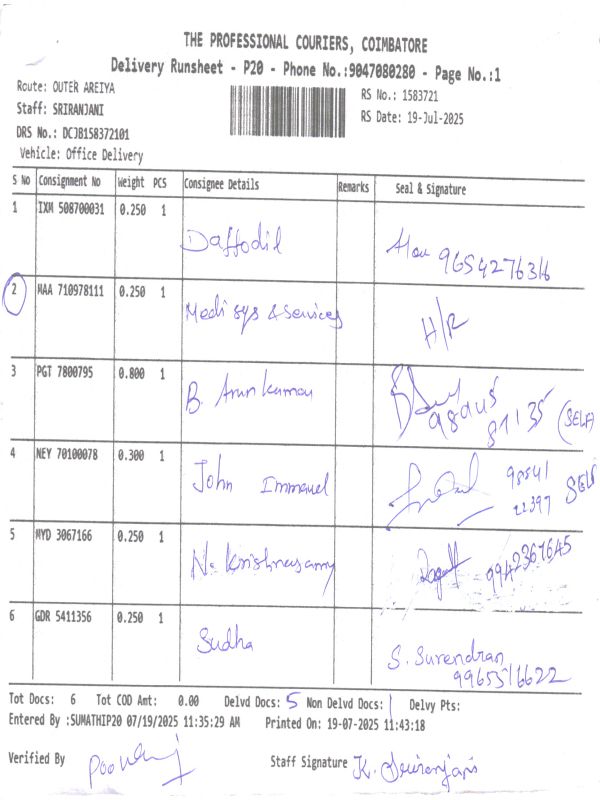 THE PROFESSIONAL COURIERS, COIMBATORE
Delivery Runsheet - P20 - Phone No.:9047080280 - Page No.:1
Route: OUTER AREIYA
RS No.: 1583721
Staff: SRIRANJANI
RS Date: 19-Jul-2025
DRS No.: DCJB158372101
Vehicle: Office Delivery
S No Consignment No Weight PCS Consignee Details Remarks Seal & Signature
1 IXM 508700031 0.250 1
Daffodil 9654276316
2 MAA 710978111 0.250 1
Medi sys & Services H/R
3 PGT 7800795 0.800 1
B. Arun kumar
81135 (SELF)
4 NEY 70100078 0.300 1
John Immanuel 98541
22397 SELF
5 MYD 3067166 0.250 1
N. Krishnasamy 9942367645
6 GDR 5411356 0.250 1
Sudha S. Surendran
9965516622
Tot Docs: 6 Tot COD Amt: 0.00 Delvd Docs: 5 Non Delvd Docs: 1 Delvy Pts:
Entered By :SUMATHIP20 07/19/2025 11:35:29 AM Printed On: 19-07-2025 11:43:18
Verified By
Staff Signature K. Sriranjani